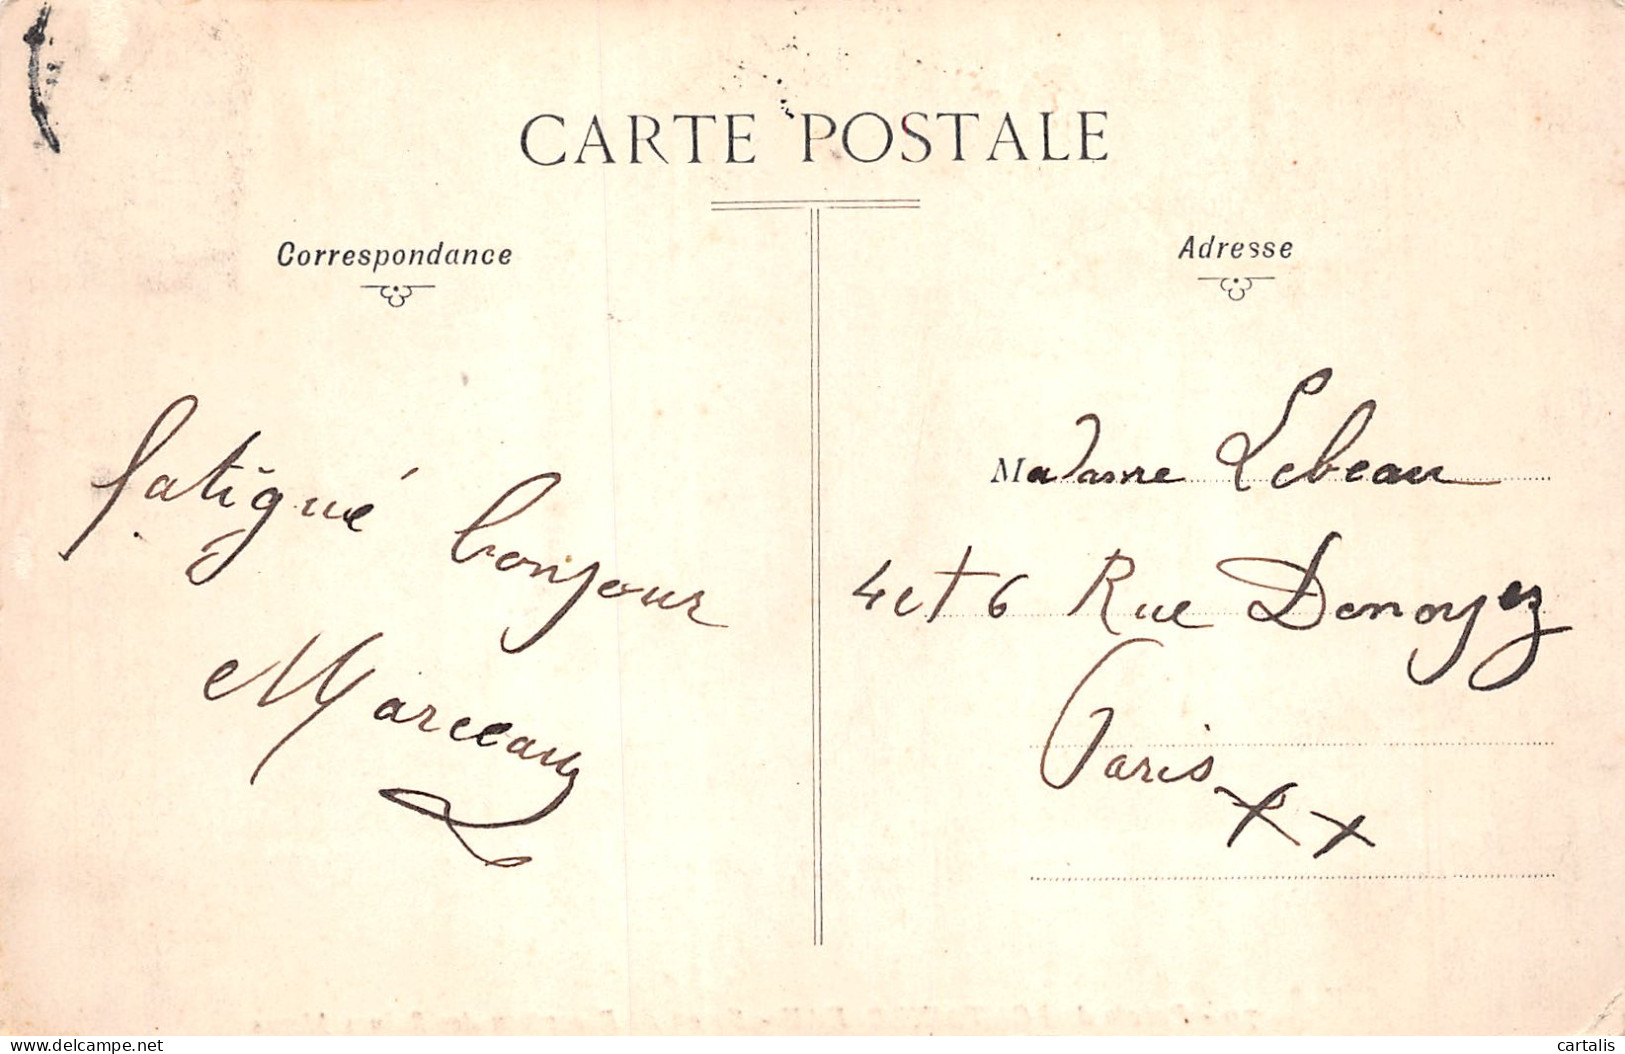 CARTE POSTALE
Correspondance
Adresse
fatigué bonjour
Marceau
Madame Lebeau
4 et 6 Rue Denoyez
Paris
XX
delcampe.net
cartalis